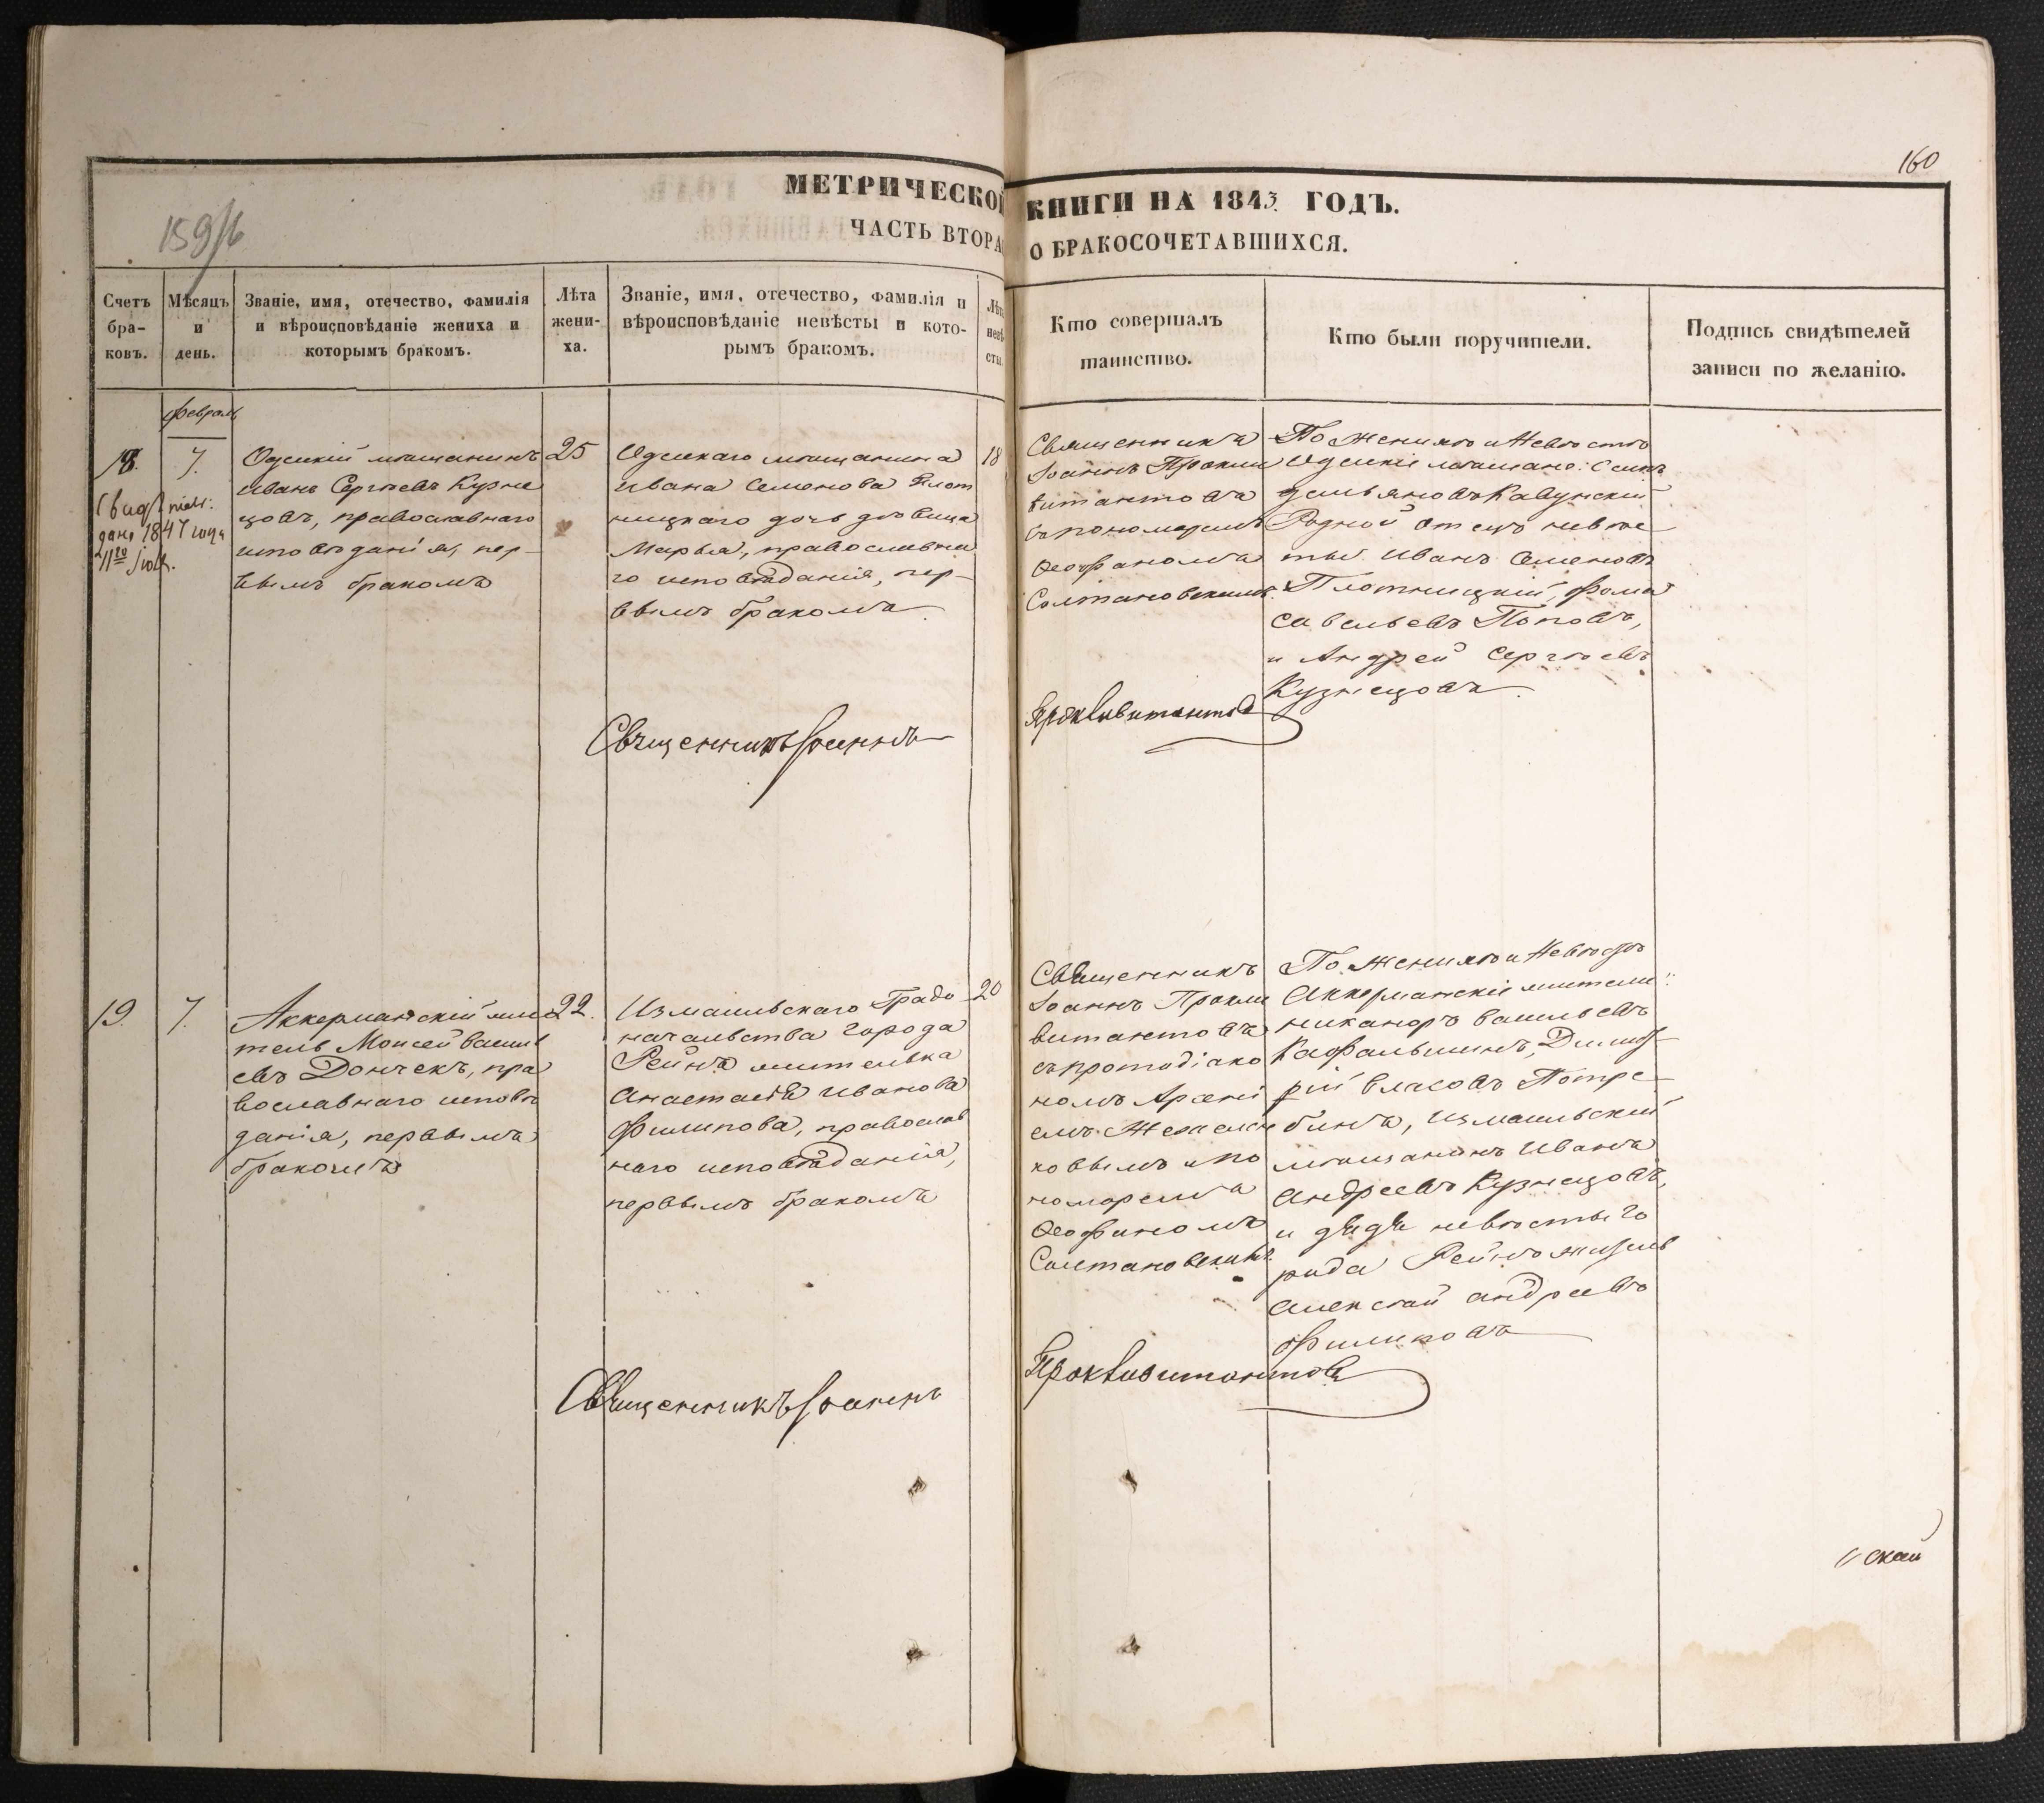 160
159/6
МЕТРИЧЕСКОЙ КНИГИ НА 1843 ГОДЪ.
ЧАСТЬ ВТОРА О БРАКОСОЧЕТАВШИХСЯ.
Счетъ бра-ковъ.
Мѣсяцъ и день.
Званіе, имя, отечество, фамилія
и вѣроисповѣданіе жениха и
которымъ бракомъ.
Лѣта
жени-
ха.
Званіе, имя, отечество, фамилія и
вѣроисповѣданіе невѣсты и кото-
рымъ бракомъ.
Лѣта
невѣ-
сты.
Кто совершалъ
таинство.
Кто были поручители.
Подпись свидѣтелей
записи по желанію.
февраль
18.
7.
дано 1847 года
Одескій мѣщанинъ
Иванъ Сергѣевъ Кузне
цовъ, православнаго
исповѣданія, пер-
вымъ бракомъ
25
Одескаго мѣщанина
Ивана Семенова Плот
ницкаго дочь дѣвица
Марья, православна
го исповѣданія, пер-
вымъ бракомъ.
18
Священникъ
Іоаннъ Прокли
витантовъ
съ пономаремъ
Ѳеофаномъ
Солтановскимъ.
По женихѣ и Невѣстѣ
Одескіе мѣщане:
Кавунскій
Родной отецъ невѣс
ты Иванъ Семеновъ
Плотницкій, Фома
Савельевъ Поповъ,
и Андрей Сергѣевъ
Кузнецовъ.
Священникъ Іоаннъ Прокливитантовъ
19.
7.
Аккерманскій жи
тель Моисей Василь
евъ Дончекъ, пра
вославнаго исповѣ
данія, первымъ
бракомъ
22.
Измаильскаго Градо
начальства города
Рени жителька
Анастасія Иванова
Филипова, православ
наго исповѣданія,
первымъ бракомъ
20
Священникъ
Іоаннъ Прокли
витантовъ
съ протодіако
номъ Арсені
емъ
ковымъ и по
номаремъ
Ѳеофаномъ
Солтановскимъ.
По женихѣ и Невѣстѣ
Аккерманскіе жители:
Никаноръ Васильевъ
Димит
рій Власовъ Потре
бинъ, Измаильскій
мѣщанинъ Иванъ
Андреевъ Кузнецовъ,
и дядя невѣсты го
рода Рени житель
Алексѣй Андреевъ
Филиповъ
Священникъ Іоаннъ Прокливитантовъ